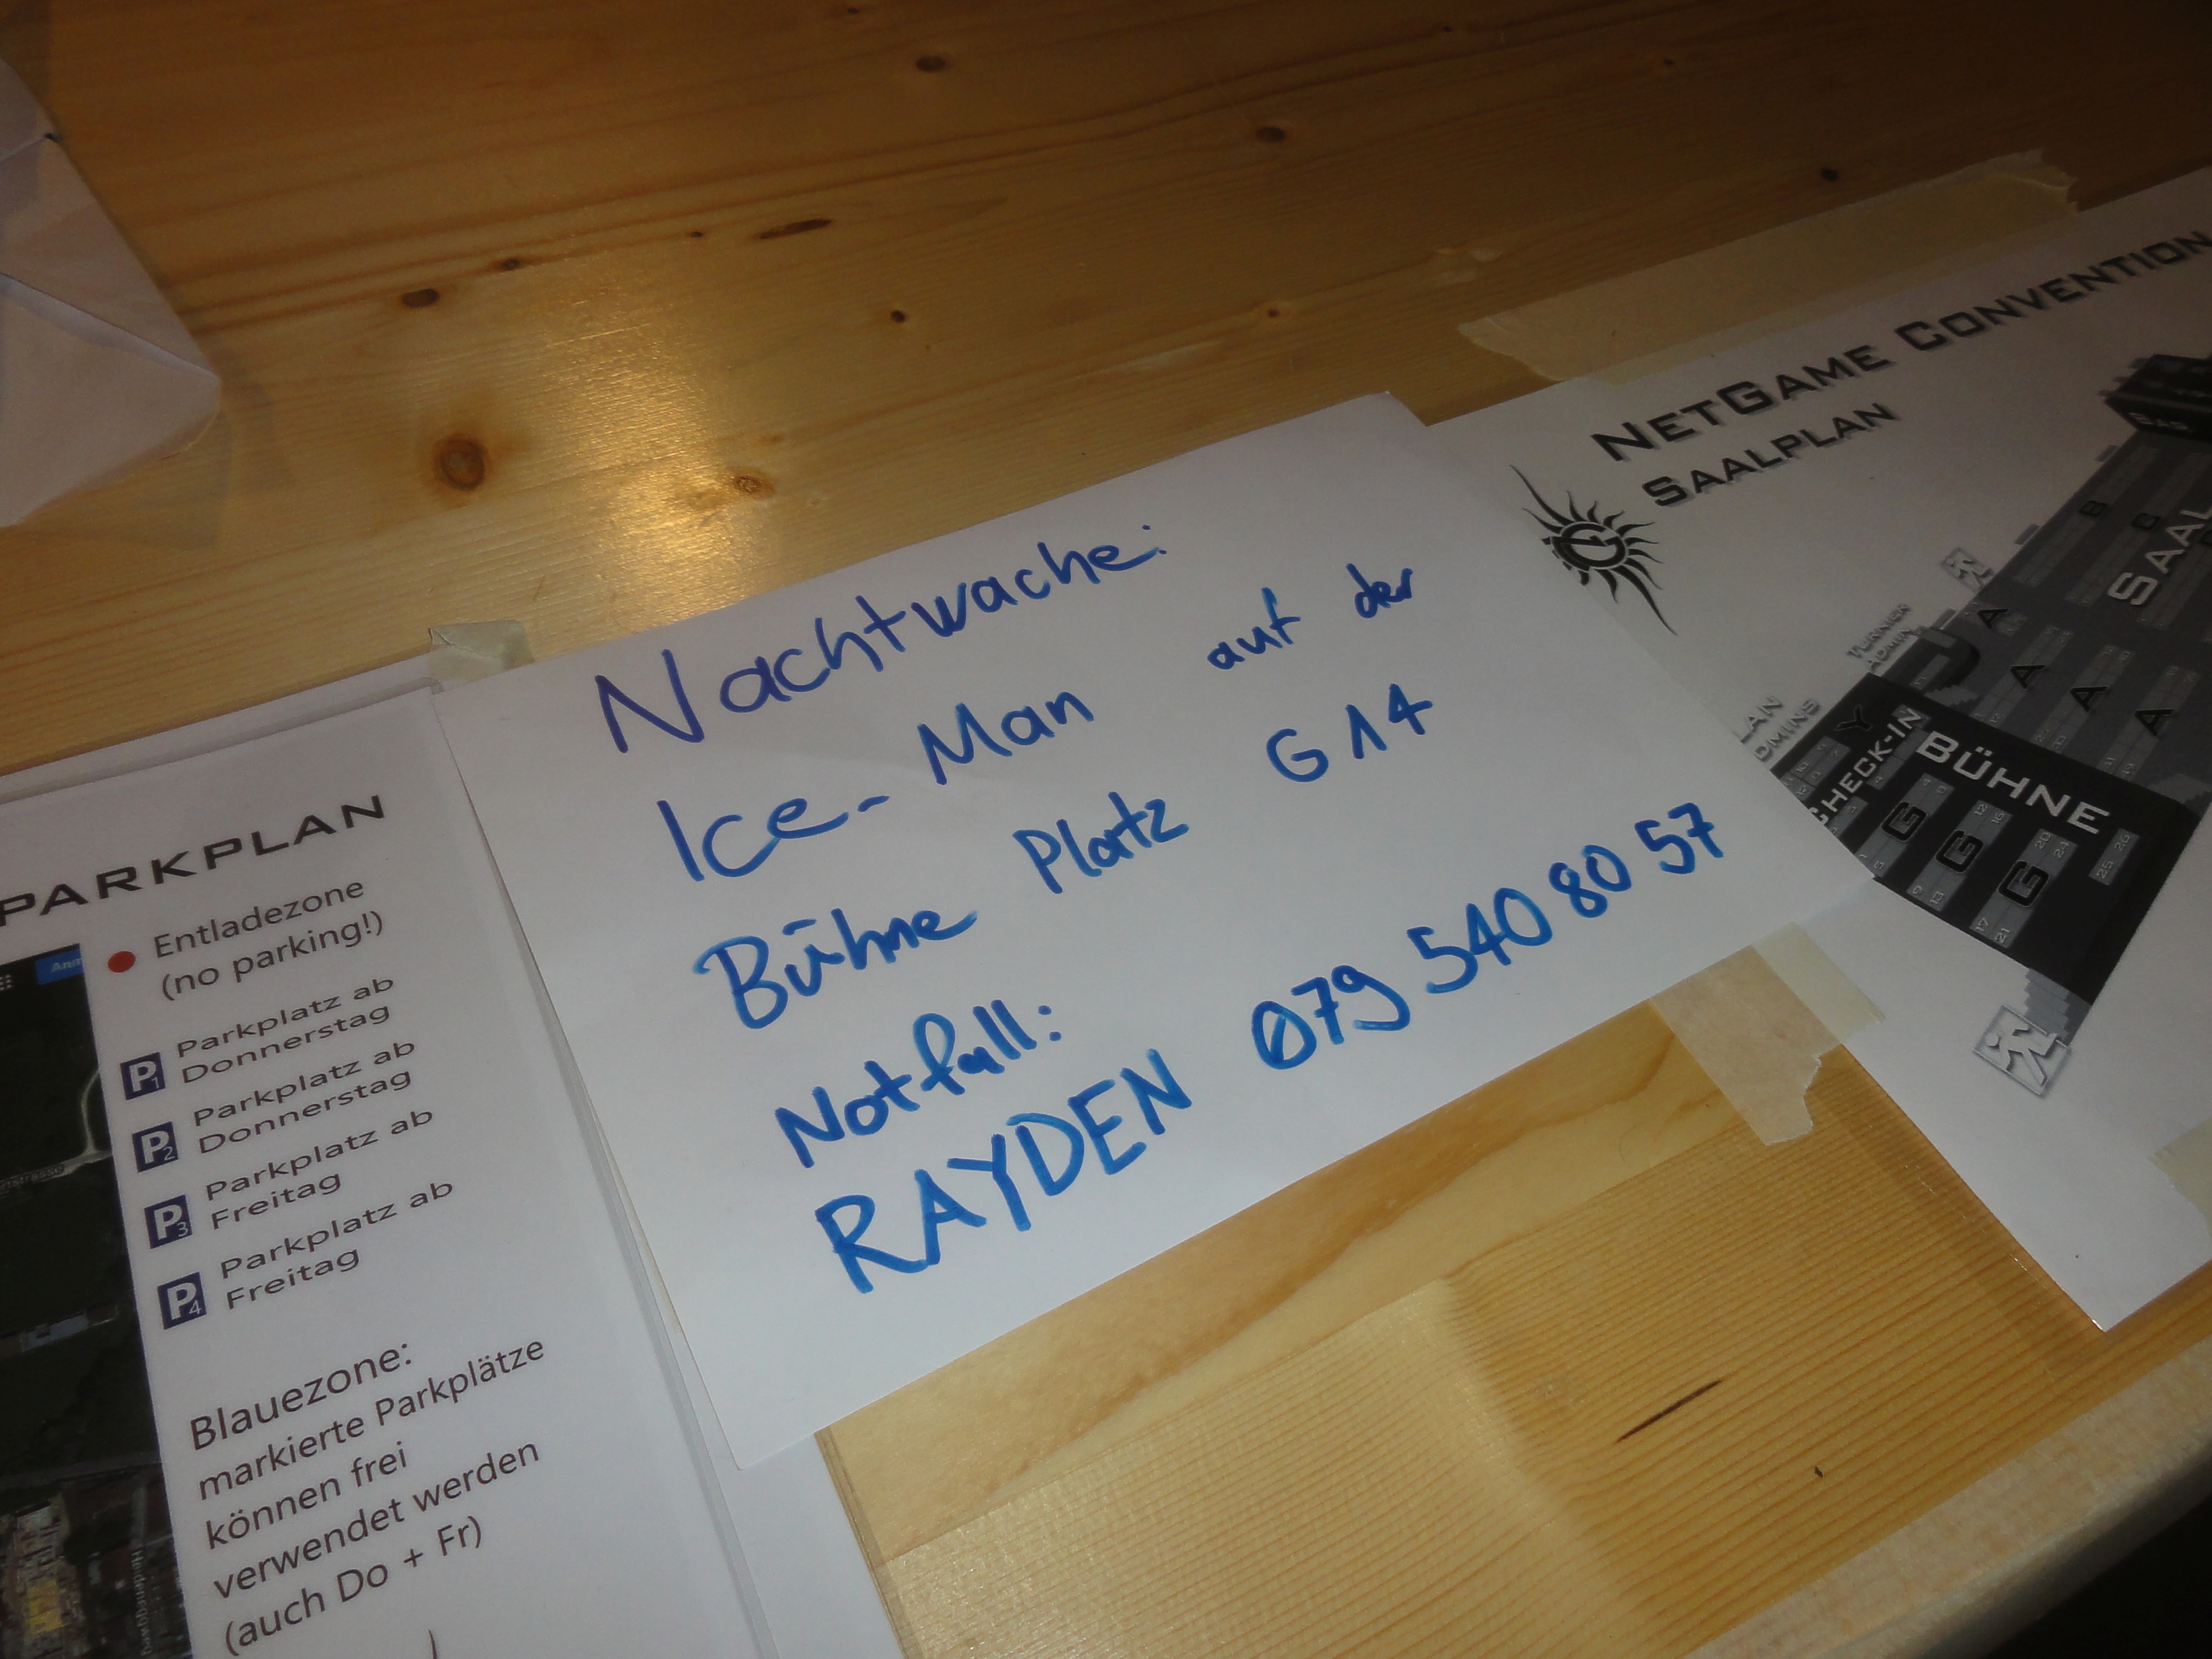 PARKPLAN
Entladezone
(no parking!)
P1 Parkplatz ab
Donnerstag
P2 Parkplatz ab
Donnerstag
P3 Parkplatz ab
Freitag
P4 Parkplatz ab
Freitag
Blauezone:
markierte Parkplätze
können frei
verwendet werden
(auch Do + Fr)
Nachtwache:
Ice-Man auf der
Bühne Platz G14
Notfall:
RAYDEN 079 540 80 57
NETGAME CONVENTION
SAALPLAN
BAR
B
C
SAAL
TURNIER
ADMIN
A
A
A
A
LAN
Y
CHECK-IN
BÜHNE
G
G
G